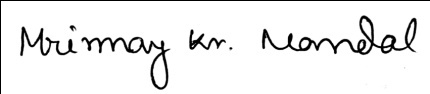 Mrinmay Kr. Mondal